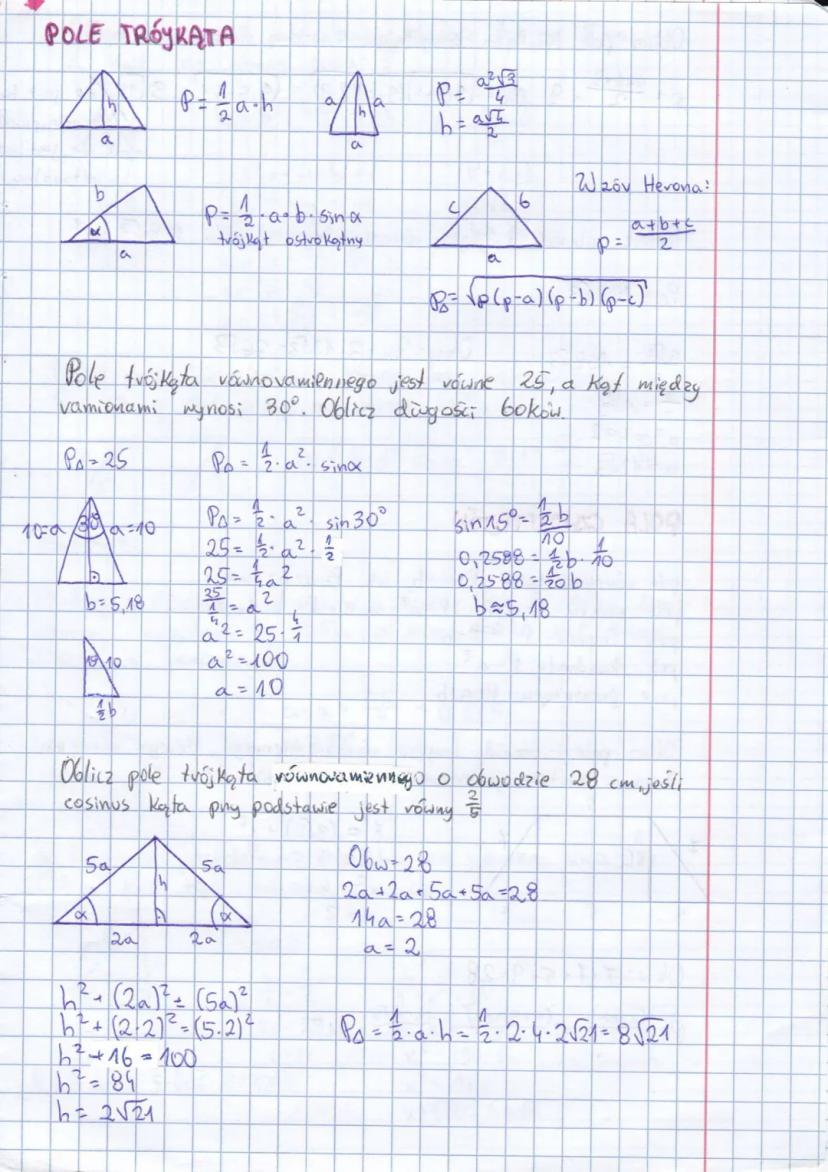 POLE TRÓJKĄTA
h
a
P = 1/2 a · h
a a
h
a
P = a²√3/4
h = a√4/2
b
α
a
P = 1/2 · a · b · sinα
trójkąt ostrokątny
c b
a
Wzór Herona:
p = a+b+c/2
P△ = √p(p-a)(p-b)(p-c)
Pole trójkąta równoramiennego jest równe 25, a kąt między
ramionami wynosi 30°. Oblicz długości boków.
P△ = 25
P△ = 1/2 · a² · sinα
10=a 30° a=10
b = 5,18
10
1/2 b
P△ = 1/2 · a² · sin30°
25 = 1/2 · a² · 1/2
25 = 1/4 a²
25/(1/4) = a²
a² = 25 · 4/1
a² = 100
a = 10
sin15° = 1/2 b/10
0,2588 = 1/2 b · 1/10
0,2588 = 1/20 b
b ≈ 5,18
Oblicz pole trójkąta równoramiennego o obwodzie 28 cm, jeśli
cosinus kąta przy podstawie jest równy 2/5
5a 5a
h
α α
2a 2a
Obw = 28
2a + 2a + 5a + 5a = 28
14a = 28
a = 2
h² + (2a)² = (5a)²
h² + (2·2)² = (5·2)²
h² + 16 = 100
h² = 84
h = 2√21
P△ = 1/2 · a · h = 1/2 · 2 · 4 · 2√21 = 8√21